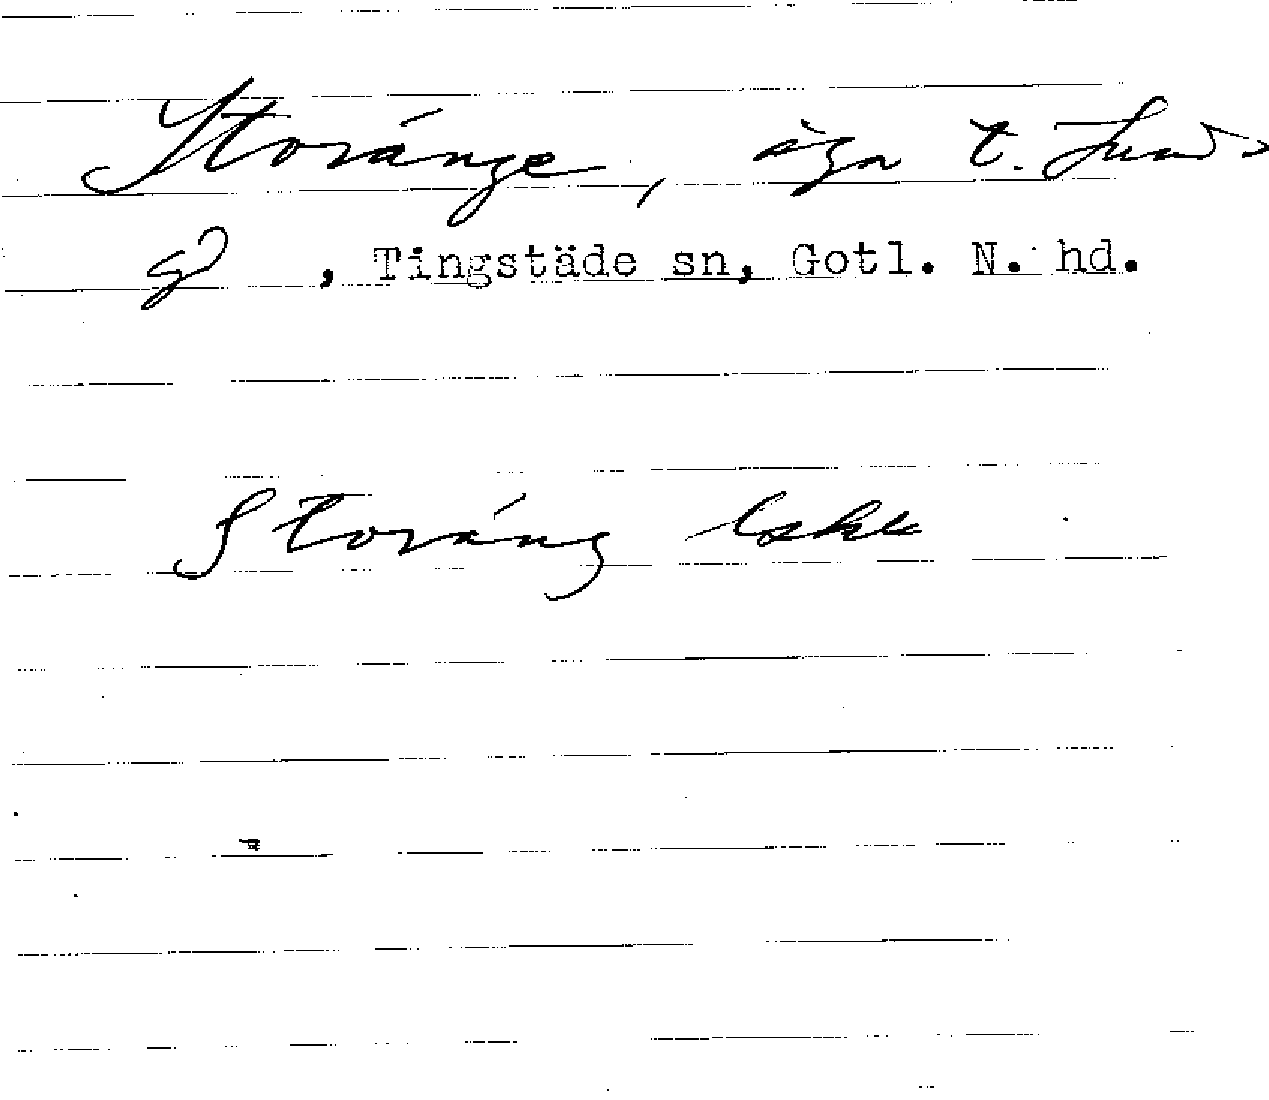 Storänge, äga t. Lunds
gd, Tingstäde sn, Gotl. N. hd.
Storäng Eskk